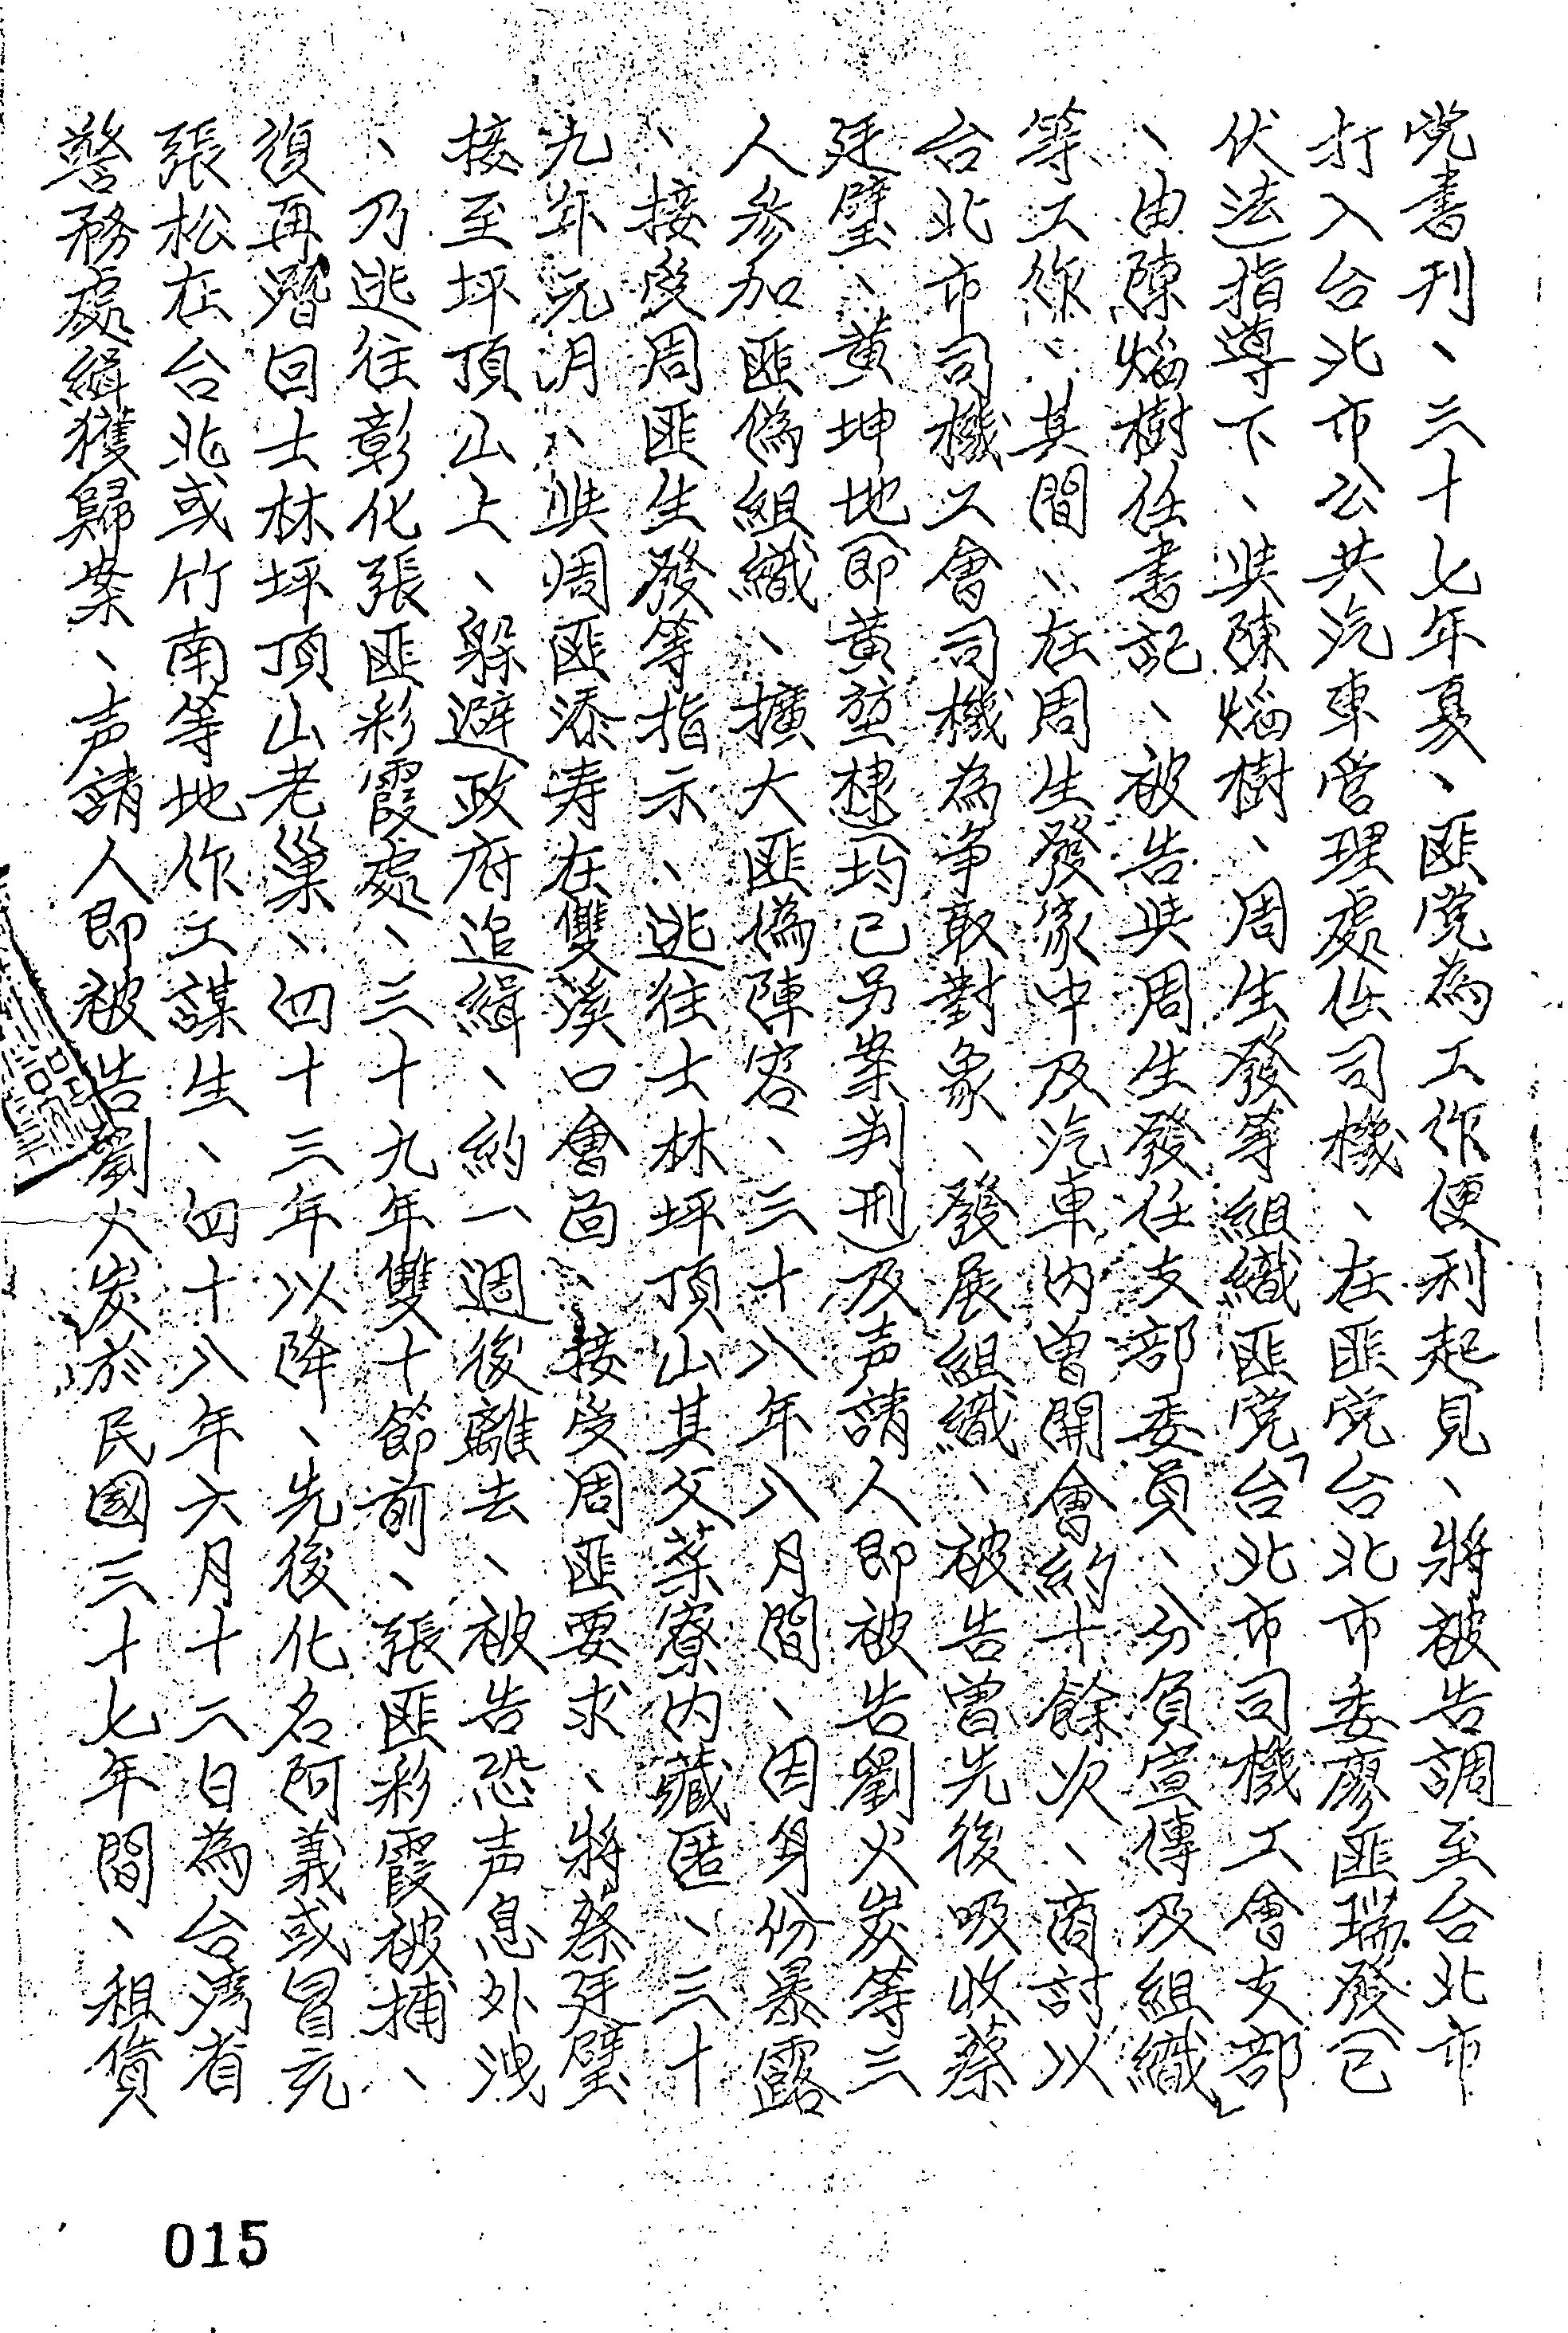 党書刊、三十七年夏、匪党為工作便利起見、將被告調至台北市
打入台北市公共汽車管理處任司機、在匪党台北市委廖匪瑞發(已
伏法)指導下、與陳熖樹、周生發等組織匪党「台北市司機工會支部
、由陳熖樹任書記、被告與周生發任支部委員、分負宣傳及組織」
等工作、其間、在周生發家中及汽車內曾開會約十餘次、商討以
台北市司機工會司機為争取對象、發展組織、被告曾先後吸收蔡
廷璧、黄坤地(即黄堃棣)(均已另案判刑)及声請人即被告劉火炭等三
人參加匪偽組織、擴大匪偽陣容、三十八年八月間、因身份暴露
、接受周匪生發等指示、逃往士林坪頂山其父菜寮內藏匿、三十
九年元月、與周匪添寿在雙溪口會面、接受周匪要求、將蔡廷璧
接至坪頂山上、躲避政府追緝、約一週後離去、被告恐声息外洩
、乃逃往彰化張匪彩霞處、三十九年雙十節前、張匪彩霞被捕、
復再潛回士林坪頂山老巢、四十三年以降、先後化名阿義或冒充
張松在台北或竹南等地作工謀生、四十八年六月十二日為台湾省
警務處緝獲歸案、声請人即被告劉火炭於民國三十七年間、租賃
015